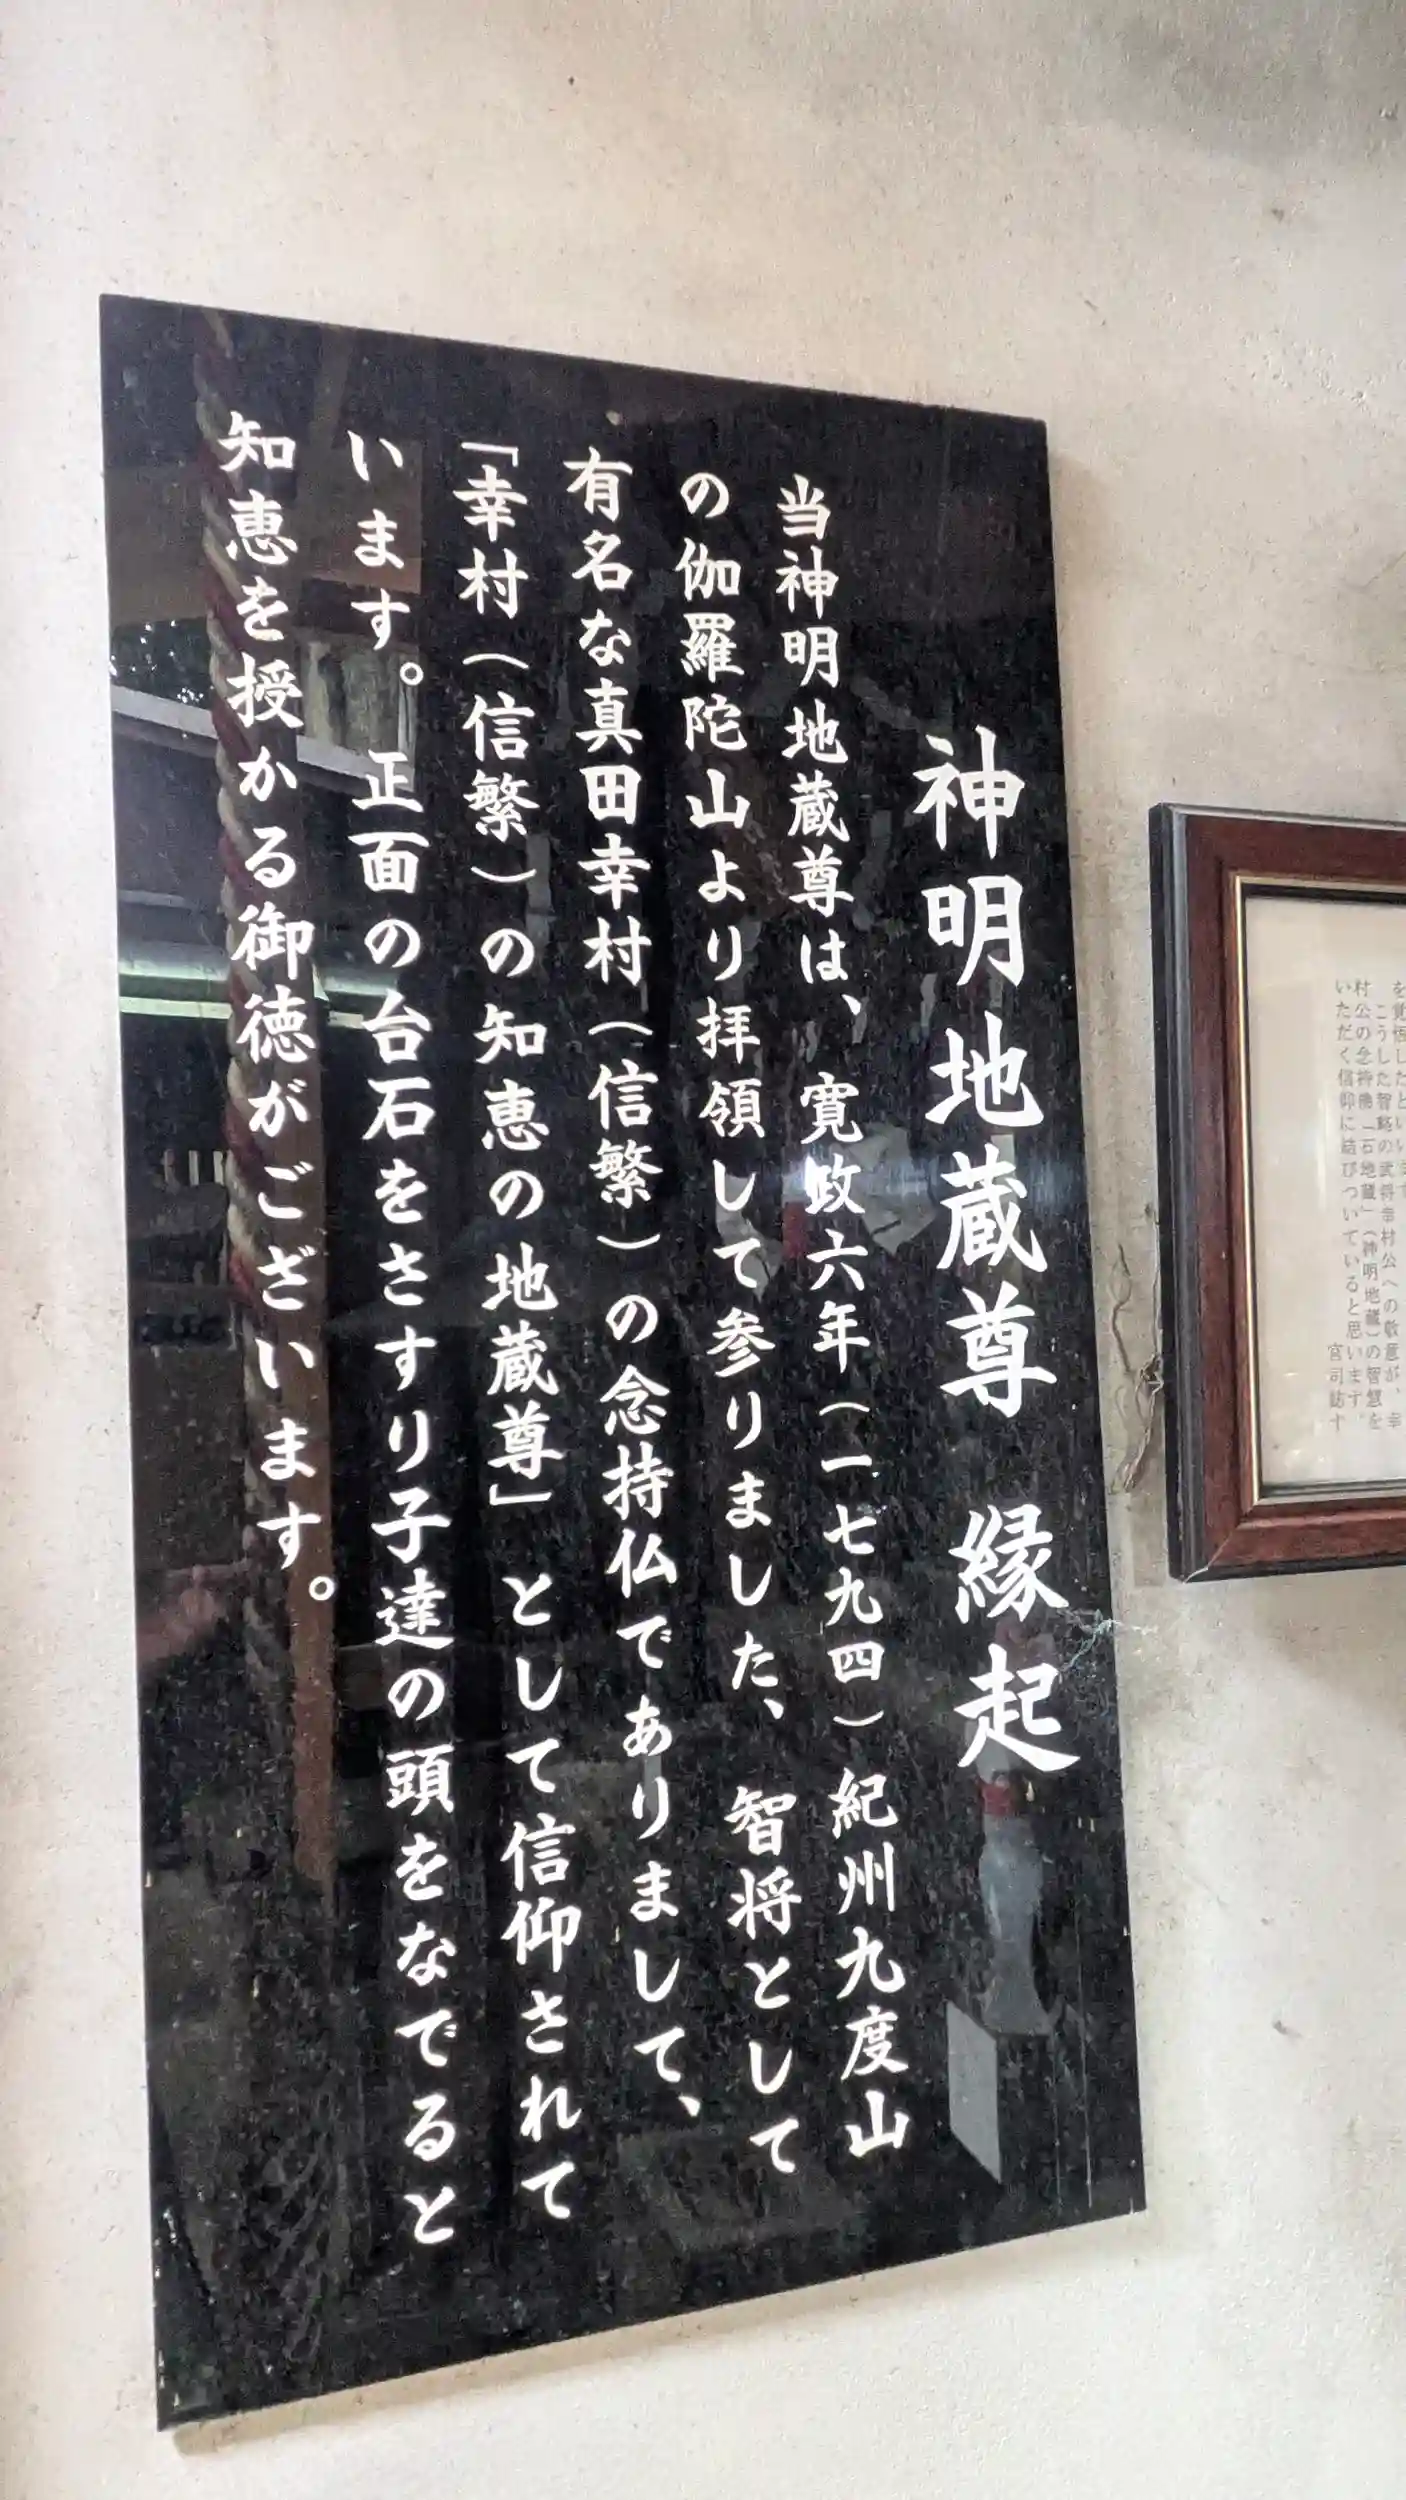 神明地蔵尊 縁起
当神明地蔵尊は、寛政六年(一七九四)紀州九度山
の伽羅陀山より拝領して参りました、智将として
有名な真田幸村(信繁)の念持仏でありまして、
「幸村(信繁)の知恵の地蔵尊」として信仰されて
います。正面の台石をさすり子達の頭をなでると
知恵を授かる御徳がございます。
こうした智略の武将幸村公への敬意が、幸
村公の念持佛「石地蔵」(神明地蔵)の智慧を
いただく信仰に結びついていると思います。
宮司誌す